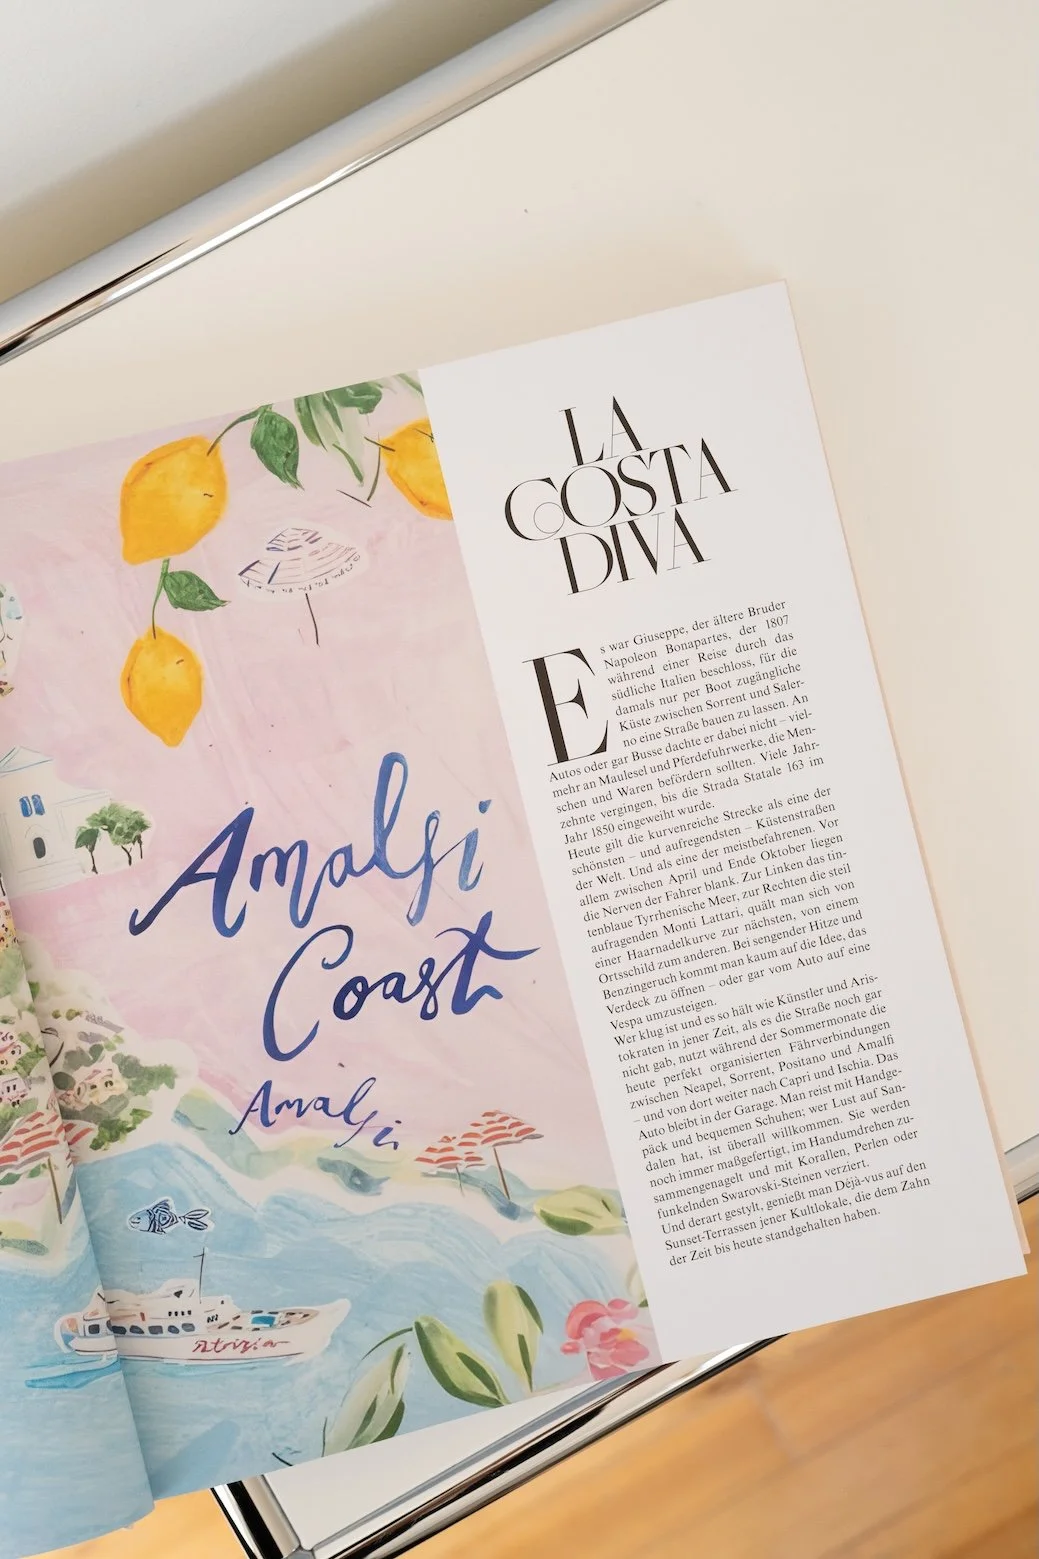 Amalfi
Coast
Amalfi
LA
COSTA
DIVA
Es war Giuseppe, der ältere Bruder
Napoleon Bonapartes, der 1807
während einer Reise durch das
südliche Italien beschloss, für die
damals nur per Boot zugängliche
Küste zwischen Sorrent und Saler-
no eine Straße bauen zu lassen. An
Autos oder gar Busse dachte er dabei nicht – viel-
mehr an Maulesel und Pferdefuhrwerke, die Men-
schen und Waren befördern sollten. Viele Jahr-
zehnte vergingen, bis die Strada Statale 163 im
Jahr 1850 eingeweiht wurde.
Heute gilt die kurvenreiche Strecke als eine der
schönsten – und aufregendsten – Küstenstraßen
der Welt. Und als eine der meistbefahrenen. Vor
allem zwischen April und Ende Oktober liegen
die Nerven der Fahrer blank. Zur Linken das tin-
tenblaue Tyrrhenische Meer, zur Rechten die steil
aufragenden Monti Lattari, quält man sich von
einer Haarnadelkurve zur nächsten, von einem
Ortsschild zum anderen. Bei sengender Hitze und
Benzingeruch kommt man kaum auf die Idee, das
Verdeck zu öffnen – oder gar vom Auto auf eine
Vespa umzusteigen.
Wer klug ist und es so hält wie Künstler und Aris-
tokraten in jener Zeit, als es die Straße noch gar
nicht gab, nutzt während der Sommermonate die
heute perfekt organisierten Fährverbindungen
zwischen Neapel, Sorrent, Positano und Amalfi
– und von dort weiter nach Capri und Ischia. Das
Auto bleibt in der Garage. Man reist mit Handge-
päck und bequemen Schuhen; wer Lust auf San-
dalen hat, ist überall willkommen. Sie werden
noch immer maßgefertigt, im Handumdrehen zu-
sammengenagelt und mit Korallen, Perlen oder
funkelnden Swarovski-Steinen verziert.
Und derart gestylt, genießt man Déjà-vus auf den
Sunset-Terrassen jener Kultlokale, die dem Zahn
der Zeit bis heute standgehalten haben.